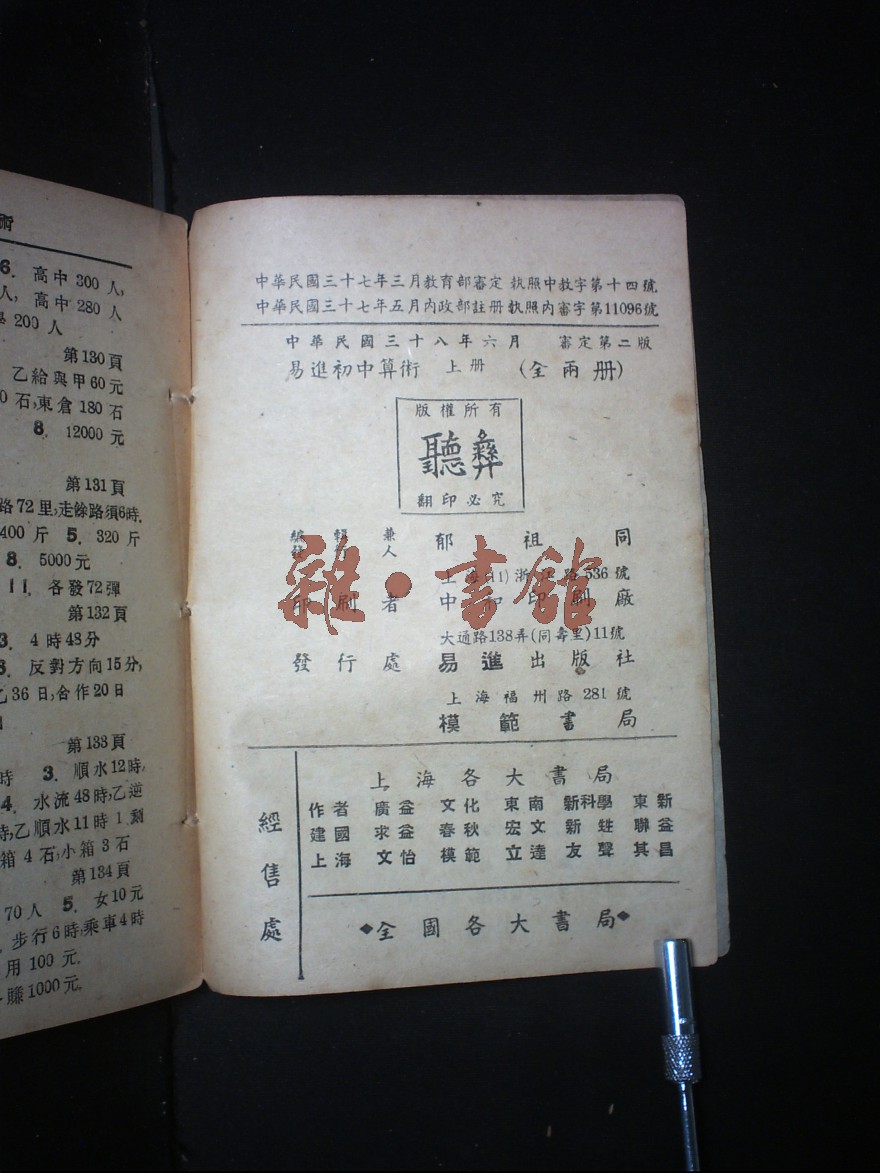 術
6. 高中300人,
人, 高中280人
200人
第130頁
乙給與甲60元
0石,東倉180石
8. 12000元
第131頁
路72里,走餘路須6時.
400斤 5. 320斤
8. 5000元
11. 各發72彈
第132頁
3. 4時48分
反對方向15分,
乙36日,合作20日
第133頁
時 3. 順水12時,
4. 水流48時,乙逆
時,乙順水11時1剩
箱4石,小箱3石
第134頁
70人 5. 女10元
步行6時,乘車4時
用100元.
賺1000元.
中華民國三十七年三月教育部審定 執照中教字第十四號
中華民國三十七年五月內政部註册 執照內審字第11096號
中華民國三十八年六月 審定第二版
易進初中算術 上册 (全兩册)
版權所有
聽彝
翻印必究
編輯兼發行人 郁祖同
上海(11)浙江路536號
印刷者 中和印刷廠
大通路138弄(同壽里)11號
發行處 易進出版社
上海福州路281號
模範書局
雜·書館
經售處
上海各大書局
作者 廣益 文化 東南 新科學 東新
建國 求益 春秋 宏文 新甡 聯益
上海 文怡 模範 立達 友聲 其昌
◆全國各大書局◆